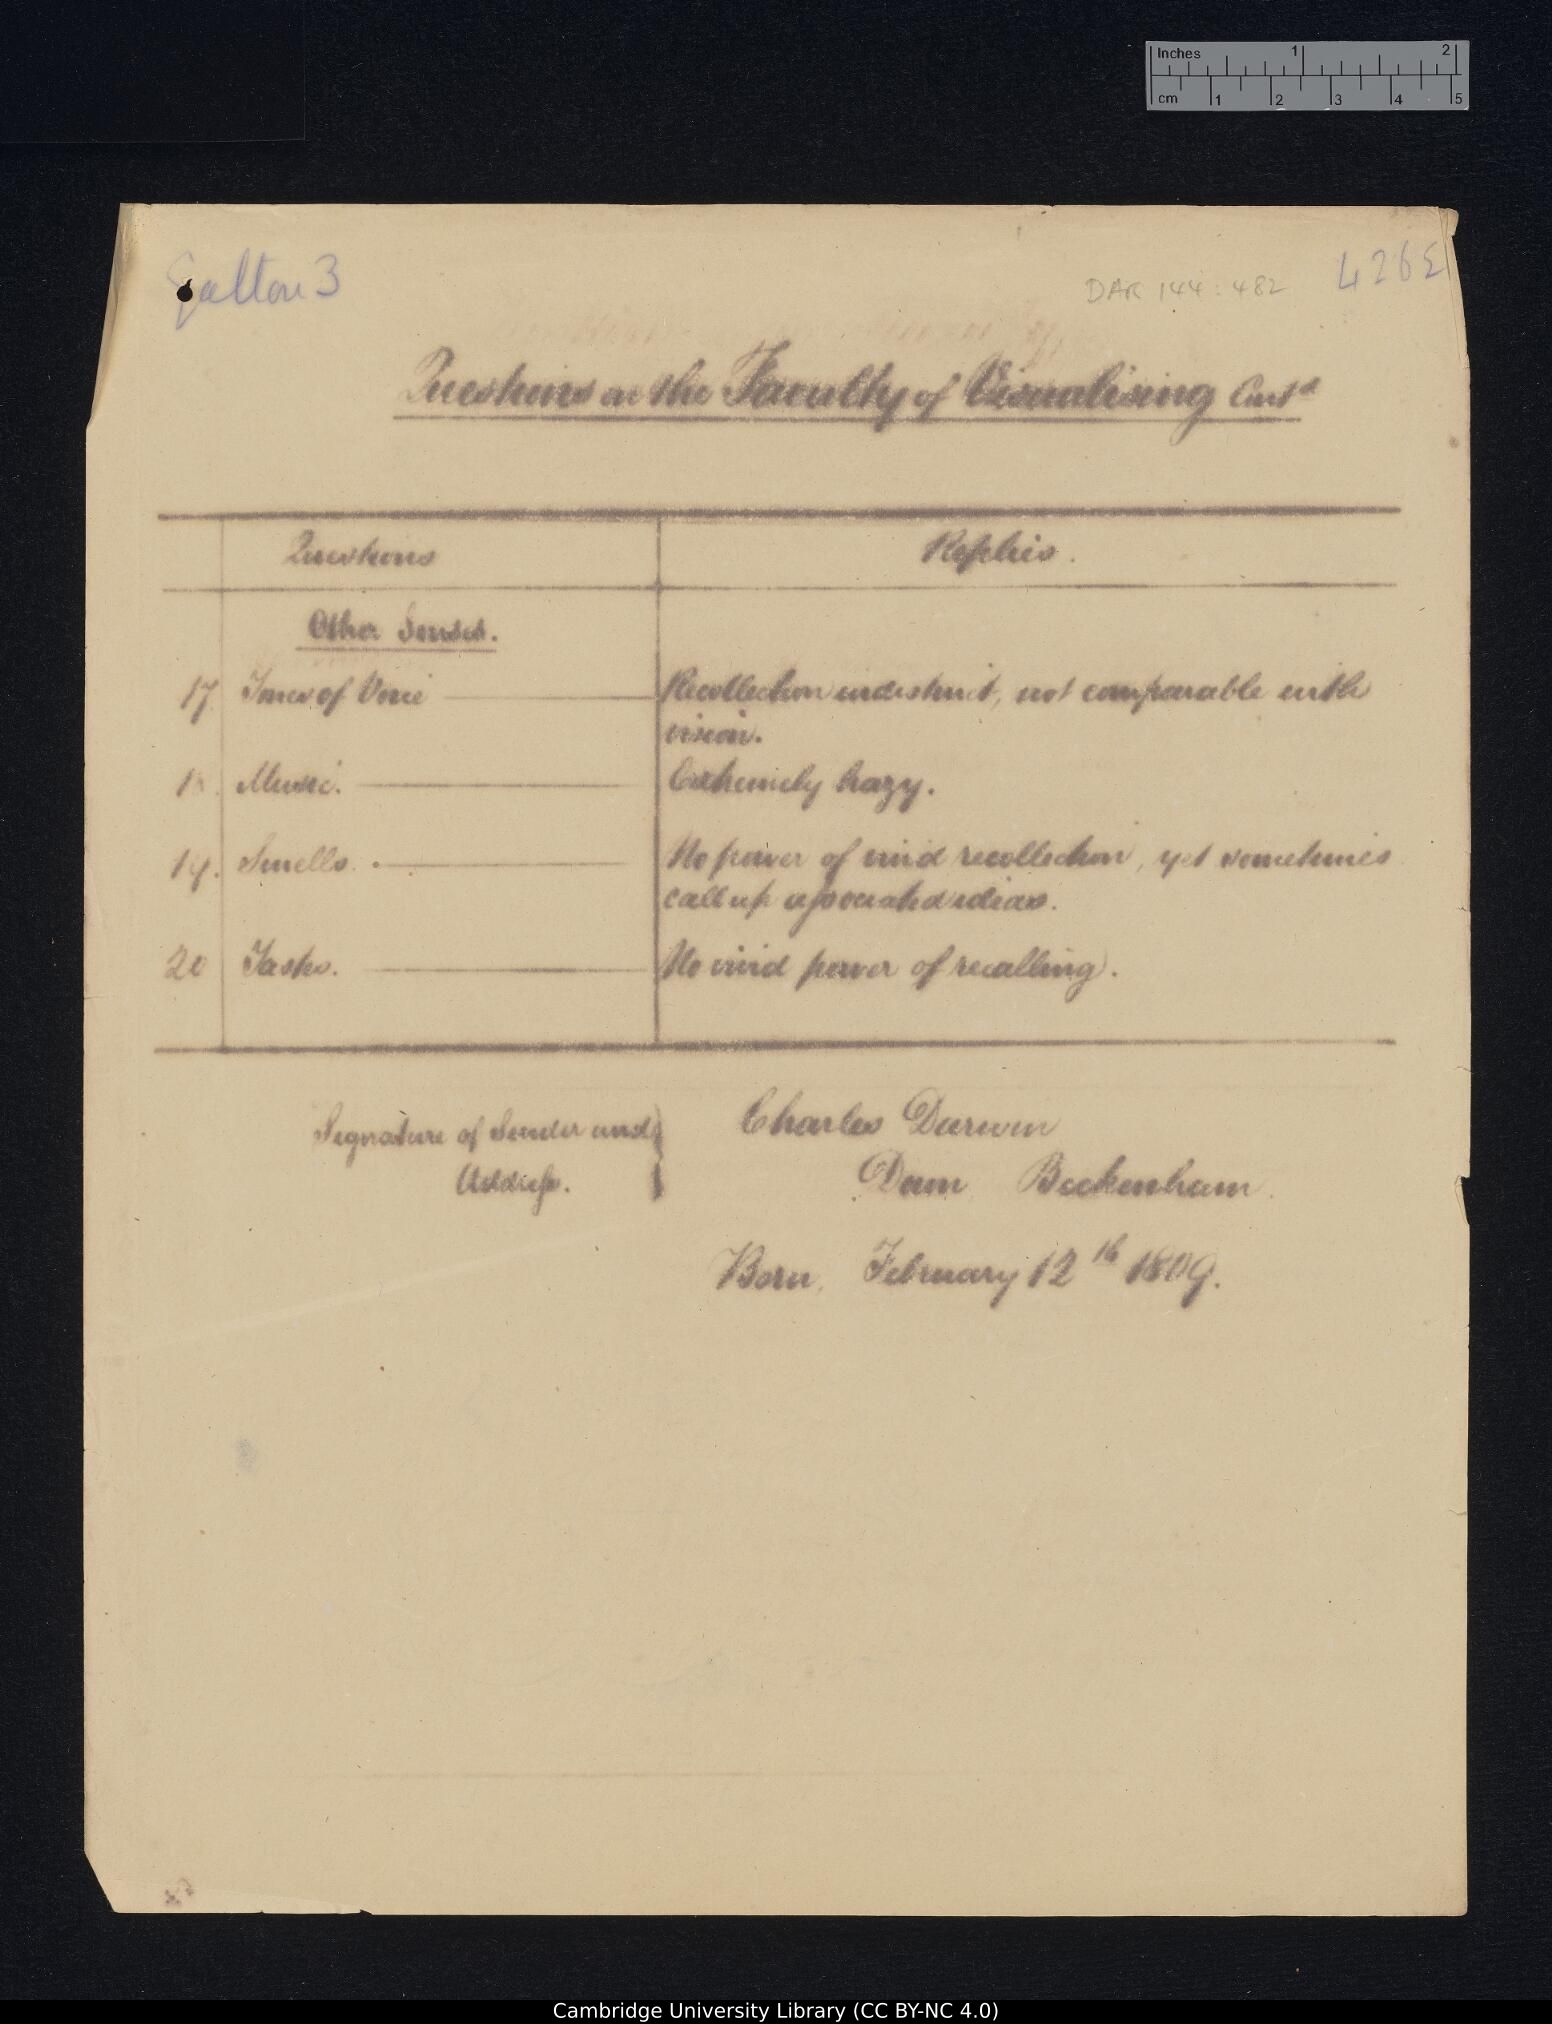 Inches 1 2
cm 1 2 3 4 5
Galton 3
DAR 144:482
426E
Questions on the Faculty of Visualising Contd
Questions
Replies.
Other Senses.
17. Tones of Voice
Recollection indistinct, not comparable with
vision.
18. Music.
Extremely hazy.
19. Smells.
No power of vivid recollection, yet sometimes
call up associated ideas.
20 Tastes.
No vivid power of recalling.
Signature of Sender and
Address.
Charles Darwin
Down Beckenham.
Born. February 12th 1809.
Cambridge University Library (CC BY-NC 4.0)